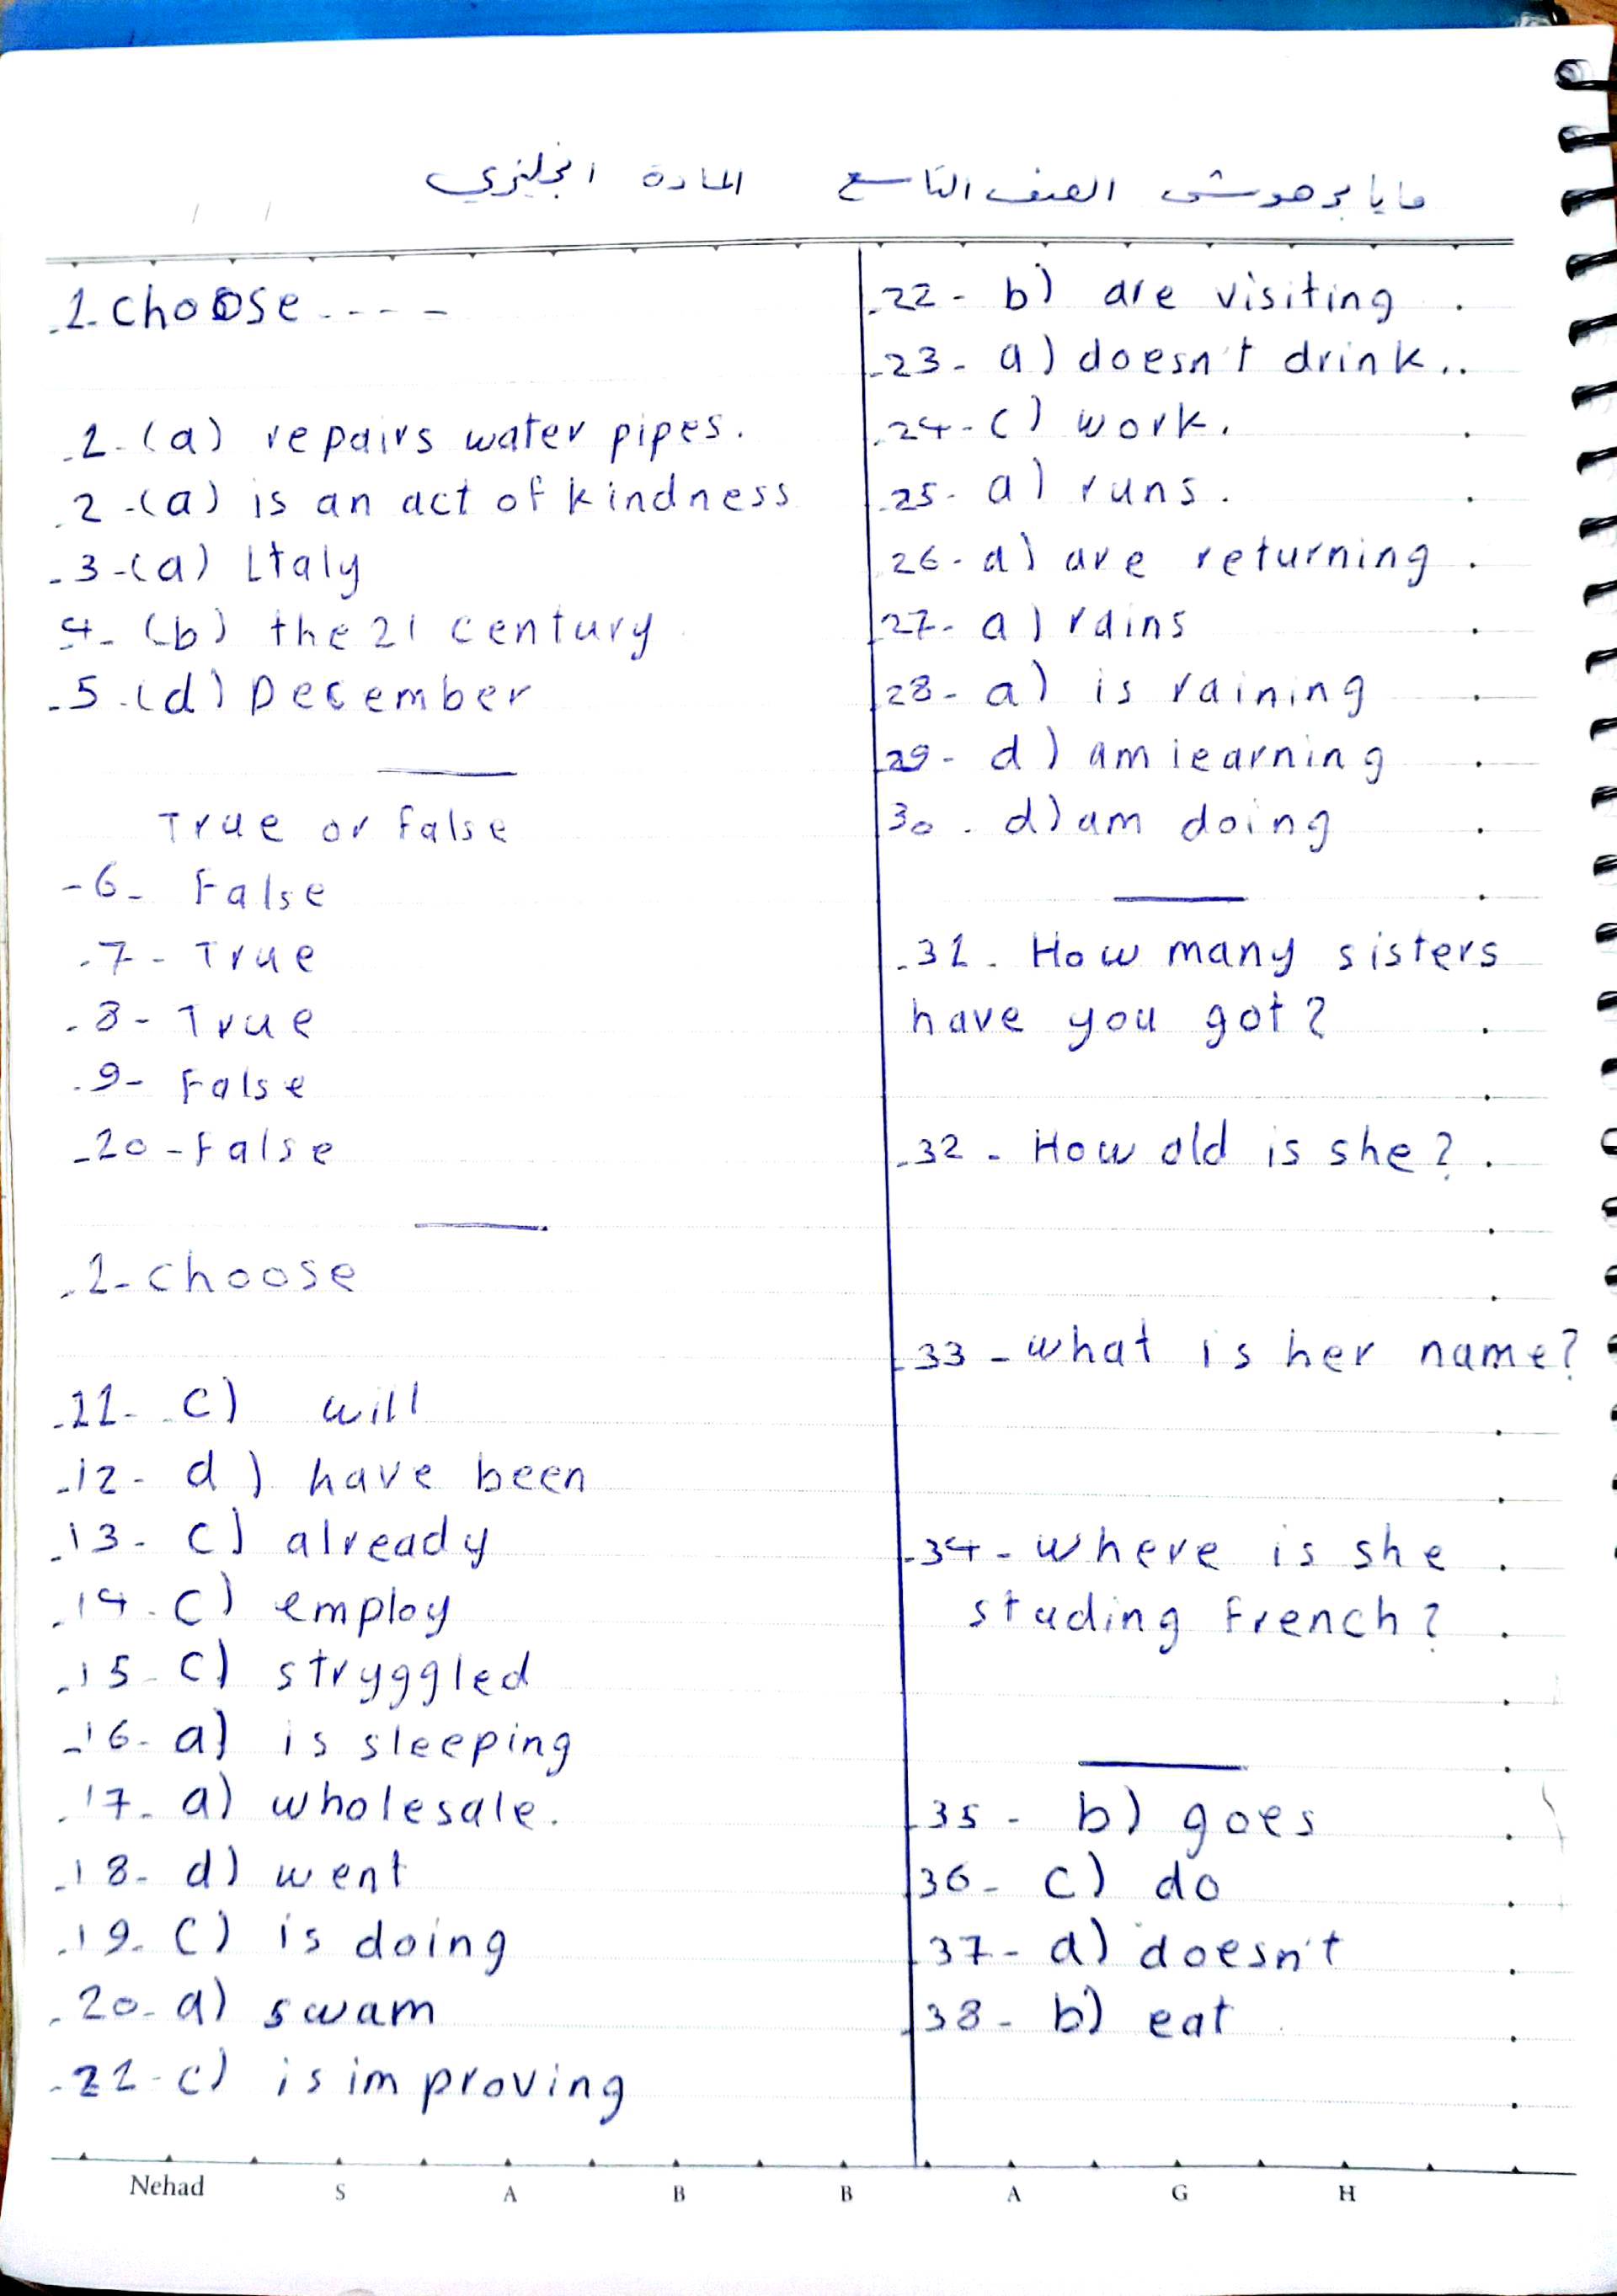 مايا برهوش الصف التاسع المادة انجليزي
.1- choose ----
.1-(a) repairs water pipes.
.2-(a) is an act of kindness
-3-(a) Italy
4-(b) the 21 century
-5-(d) December
True or false
-6- False
.7- True
.8- True
.9- False
-10- False
.2- choose
.11- c) will
.12- d) have been
.13- c) already
.14- c) employ
.15- c) stryggled
-16- a) is sleeping
.17- a) wholesale.
.18- d) went
.19- c) is doing
.20- a) swam
-21- c) is improving
.22- b) are visiting
-23- a) doesn't drink..
.24- c) work.
.25- a) runs.
26- d) are returning
27- a) rains
28- a) is raining
29- d) am learning
30. d) am doing
.31- How many sisters
have you got?
.32- How old is she?
.33- what is her name?
-34- where is she
stading French?
.35- b) goes
36- c) do
.37- a) doesn't
.38- b) eat
Nehad S A B B A G H